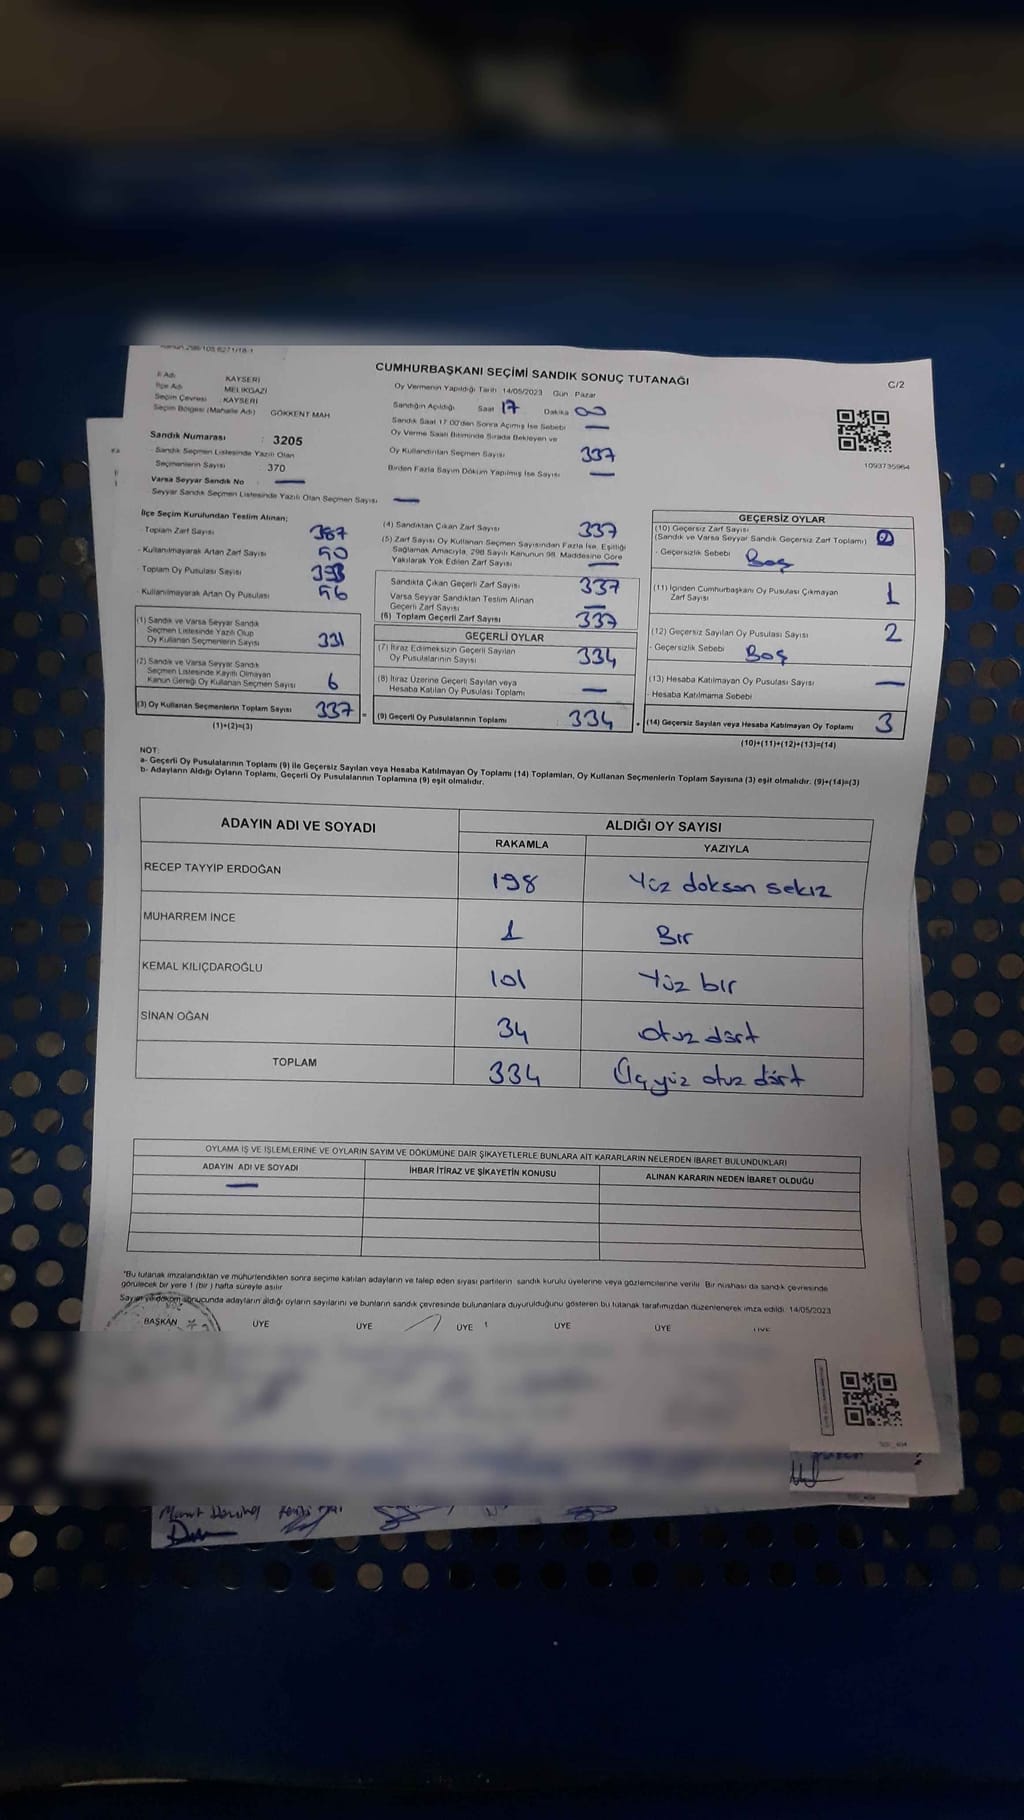 CUMHURBAŞKANI SEÇİMİ SANDIK SONUÇ TUTANAĞI
C/2
İl Adı KAYSERİ
İlçe Adı MELİKGAZİ
Seçim Çevresi : KAYSERİ
Seçim Bölgesi (Mahalle Adı) GÖKKENT MAH
Oy Vermenin Yapıldığı Tarih 14/05/2023 Gün Pazar
Sandığın Açıldığı Saat 17 Dakika 00
Sandık Saat 17.00'den Sonra Açılmış İse Sebebi —
Oy Verme Saati Bitiminde Sırada Bekleyen ve
Oy Kullandırılan Seçmen Sayısı 337
Birden Fazla Sayım Döküm Yapılmış İse Sayısı —
1093735964
Sandık Numarası : 3205
Sandık Seçmen Listesinde Yazılı Olan
Seçmenlerin Sayısı 370
Varsa Seyyar Sandık No : —
Seyyar Sandık Seçmen Listesinde Yazılı Olan Seçmen Sayısı : —
İlçe Seçim Kurulundan Teslim Alınan;
- Toplam Zarf Sayısı 387
- Kullanılmayarak Artan Zarf Sayısı 50
- Toplam Oy Pusulası Sayısı
- Kullanılmayarak Artan Oy Pusulası 56
(1) Sandık ve Varsa Seyyar Sandık
Seçmen Listesinde Yazılı Olup
Oy Kullanan Seçmenlerin Sayısı 331
(2) Sandık ve Varsa Seyyar Sandık
Seçmen Listesinde Kayıtlı Olmayan
Kanun Gereği Oy Kullanan Seçmen Sayısı 6
(3) Oy Kullanan Seçmenlerin Toplam Sayısı 337 =
(1)+(2)=(3)
(4) Sandıktan Çıkan Zarf Sayısı 337
(5) Zarf Sayısı Oy Kullanan Seçmen Sayısından Fazla İse, Eşitliği
Sağlamak Amacıyla, 298 Sayılı Kanunun 98. Maddesine Göre
Yakılarak Yok Edilen Zarf Sayısı —
Sandıkta Çıkan Geçerli Zarf Sayısı 337
Varsa Seyyar Sandıktan Teslim Alınan
Geçerli Zarf Sayısı —
(6) Toplam Geçerli Zarf Sayısı 337
GEÇERLİ OYLAR
(7) İtiraz Edilmeksizin Geçerli Sayılan
Oy Pusulalarının Sayısı 334
(8) İtiraz Üzerine Geçerli Sayılan veya
Hesaba Katılan Oy Pusulası Toplamı —
(9) Geçerli Oy Pusulalarının Toplamı 334 +
GEÇERSİZ OYLAR
(10) Geçersiz Zarf Sayısı
(Sandık ve Varsa Seyyar Sandık Geçersiz Zarf Toplamı)
- Geçersizlik Sebebi Boş
(11) İçinden Cumhurbaşkanı Oy Pusulası Çıkmayan
Zarf Sayısı 1
(12) Geçersiz Sayılan Oy Pusulası Sayısı 2
- Geçersizlik Sebebi Boş
(13) Hesaba Katılmayan Oy Pusulası Sayısı —
- Hesaba Katılmama Sebebi
(14) Geçersiz Sayılan veya Hesaba Katılmayan Oy Toplamı 3
(10)+(11)+(12)+(13)=(14)
NOT:
a- Geçerli Oy Pusulalarının Toplamı (9) ile Geçersiz Sayılan veya Hesaba Katılmayan Oy Toplamı (14) Toplamları, Oy Kullanan Seçmenlerin Toplam Sayısına (3) eşit olmalıdır. (9)+(14)=(3)
b- Adayların Aldığı Oyların Toplamı, Geçerli Oy Pusulalarının Toplamına (9) eşit olmalıdır.
ADAYIN ADI VE SOYADI ALDIĞI OY SAYISI
RAKAMLA YAZIYLA
RECEP TAYYİP ERDOĞAN 198 Yüz doksan sekiz
MUHARREM İNCE 1 Bir
KEMAL KILIÇDAROĞLU 101 Yüz bir
SİNAN OĞAN 34 otuz dört
TOPLAM 334 Üç yüz otuz dört
OYLAMA İŞ VE İŞLEMLERİNE VE OYLARIN SAYIM VE DÖKÜMÜNE DAİR ŞİKAYETLERLE BUNLARA AİT KARARLARIN NELERDEN İBARET BULUNDUKLARI
ADAYIN ADI VE SOYADI İHBAR İTİRAZ VE ŞİKAYETİN KONUSU ALINAN KARARIN NEDEN İBARET OLDUĞU
—
"Bu tutanak imzalandıktan ve mühürlendikten sonra seçime katılan adayların ve talep eden siyasi partilerin sandık kurulu üyelerine veya gözlemcilerine verilir. Bir nüshası da sandık çevresinde
görülecek bir yere 1 (bir ) hafta süreyle asılır
Sayım ve döküm sonucunda adayların aldığı oyların sayılarını ve bunların sandık çevresinde bulunanlara duyurulduğunu gösteren bu tutanak tarafımızdan düzenlenerek imza edildi. 14/05/2023
BAŞKAN ÜYE ÜYE ÜYE ÜYE ÜYE ÜYE